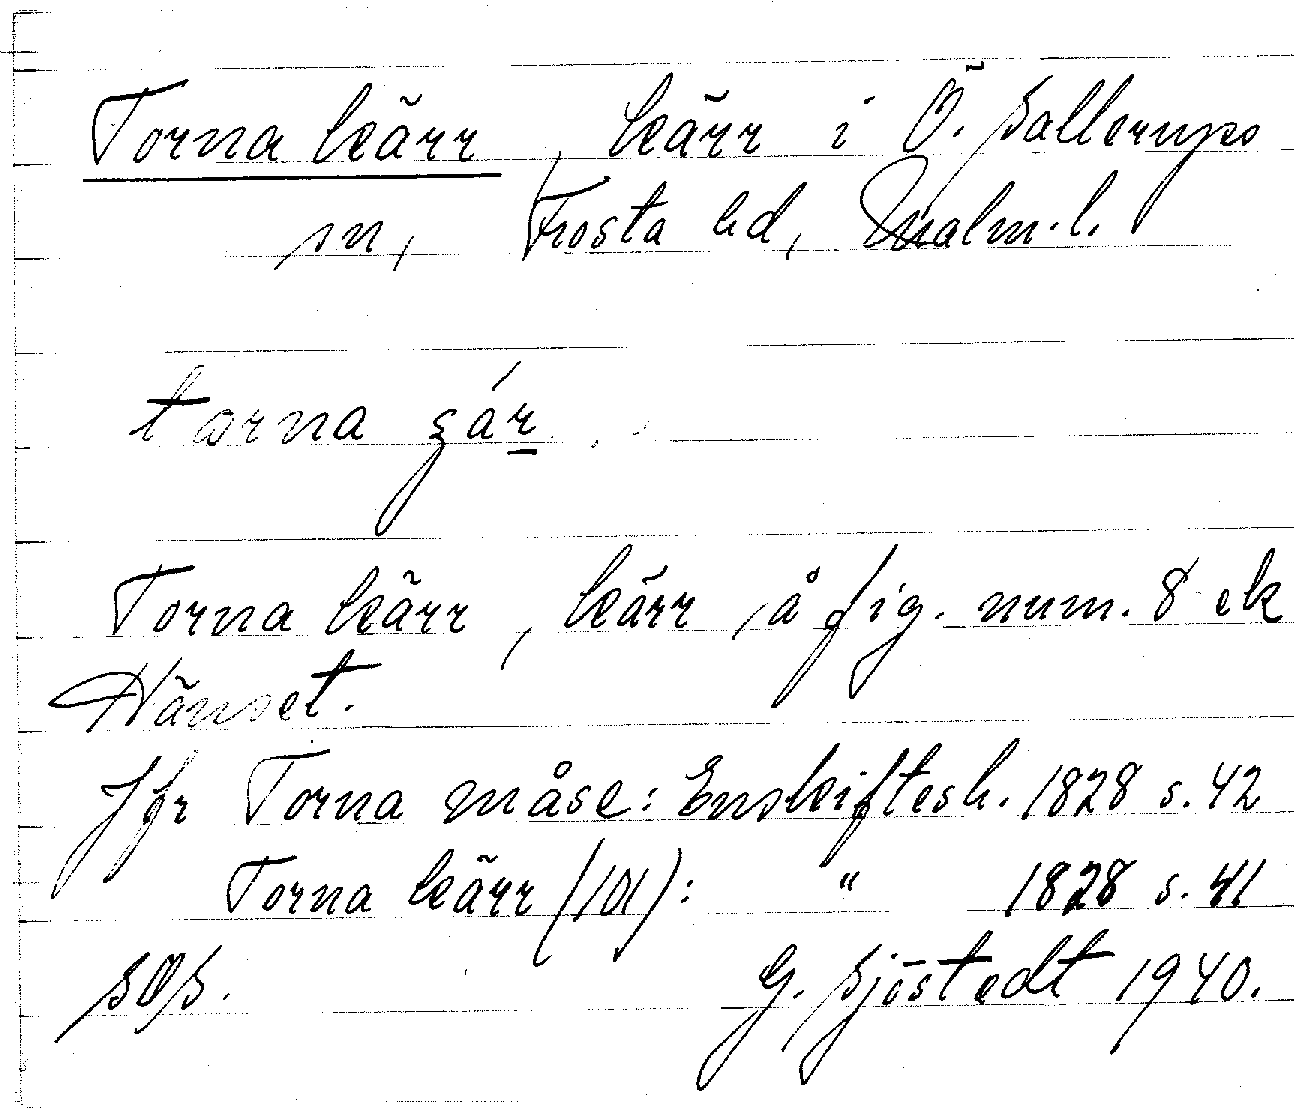 Torna kärr, kärr i Ö. Sallerups
sn, Frosta hd, Malm.l.
torna
Torna kärr, kärr, å fig. num. 8 ek
Hänset.
Jfr Torna måse: Enskiftesh. 1828 s. 42
Torna kärr (101): " 1828 s. 41
SOS. G. Sjöstedt 1940.